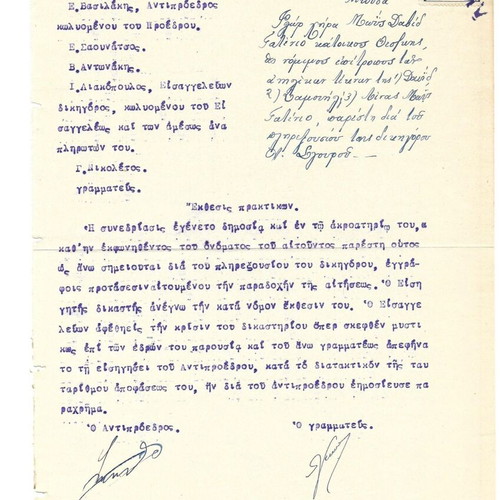 Ε.Βασιλάκης, Αντιπρόεδρος
κωλυομένου του Προέδρου.
Ε.Σαουνάτσος.
Β.Αντωνάκης.
Ι.Λιακόπουλος, Εἰσαγγελεύων
δικηγόρος, κωλυομένου τοῦ Εἰ
σαγγελέως καί των ἀμέσως ἀνα
πληρωτῶν του.
Γ.Νικολέτος.
γραμματεύς.
χήρα Μωῦς Δαβίδ
κάτοικος
νόμιμος ἐπίτροπος των
ἀνηλίκων τέκνων της 1) Δαυῒδ
2) Σαμουήλ 3)
παρέστη διά τοῦ
πληρεξουσίου της δικηγόρου
Ἔκθεσις πρακτικῶν.
Ἡ συνεδρίασις ἐγένετο δημοσίᾳ καί ἐν τῷ ἀκροατηρίῳ του,α
καθ'ην ἐκφωνηθέντος τοῦ ὀνόματος τοῦ αἰτοῦντος παρέστη οὗτος
ὡς ἄνω σημειοῦται διά τοῦ πληρεξουσίου του δικηγόρου, ἐγγρά-
φοις προτάσεσιν αἰτουμένου τήν παραδοχήν τῆς αἰτήσεως. Ὁ Εἰση
γητής δικαστής ἀνέγνω τήν κατά νόμον ἔκθεσιν του. Ὁ Εἰσαγγε
λεύων ἀφεθείς τήν κρίσιν τοῦ δικαστηρίου ὅπερ σκεφθέν μυστι
κῶς ἐπί τῶν ἑδρῶν του παρουσίᾳ καί τοῦ ἄνω γραμματέως ἀπεφήνα
το τῇ εἰσηγήσει τοῦ Ἀντιπροέδρου, κατά τό διατακτικόν τῆς ταυ
ταρίθμου ἀποφάσεως του, ἥν διά τοῦ ἀντιπροέδρου ἐδημοσίευσε πα
ραχρῆμα.
Ὁ Ἀντιπρόεδρος. Ὁ γραμματεύς.